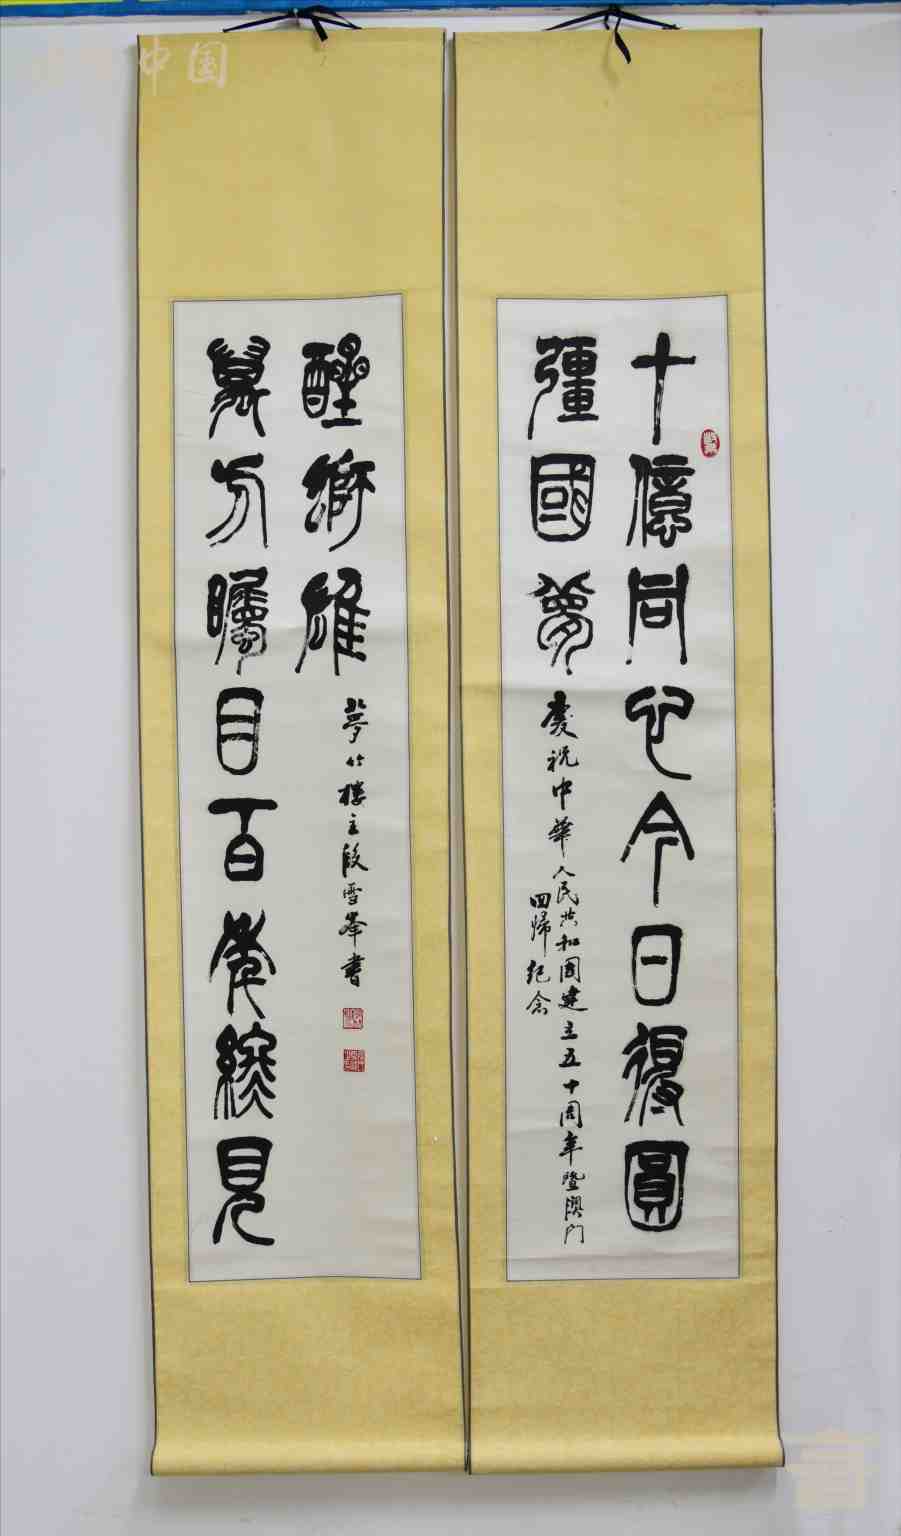 中国
十億同心今日得圓
彊國夢
慶祝中華人民共和國建立五十周年暨澳門
回歸紀念
萬方矚目百年 見
醒獅雄
夢竹樓主段雪峯書